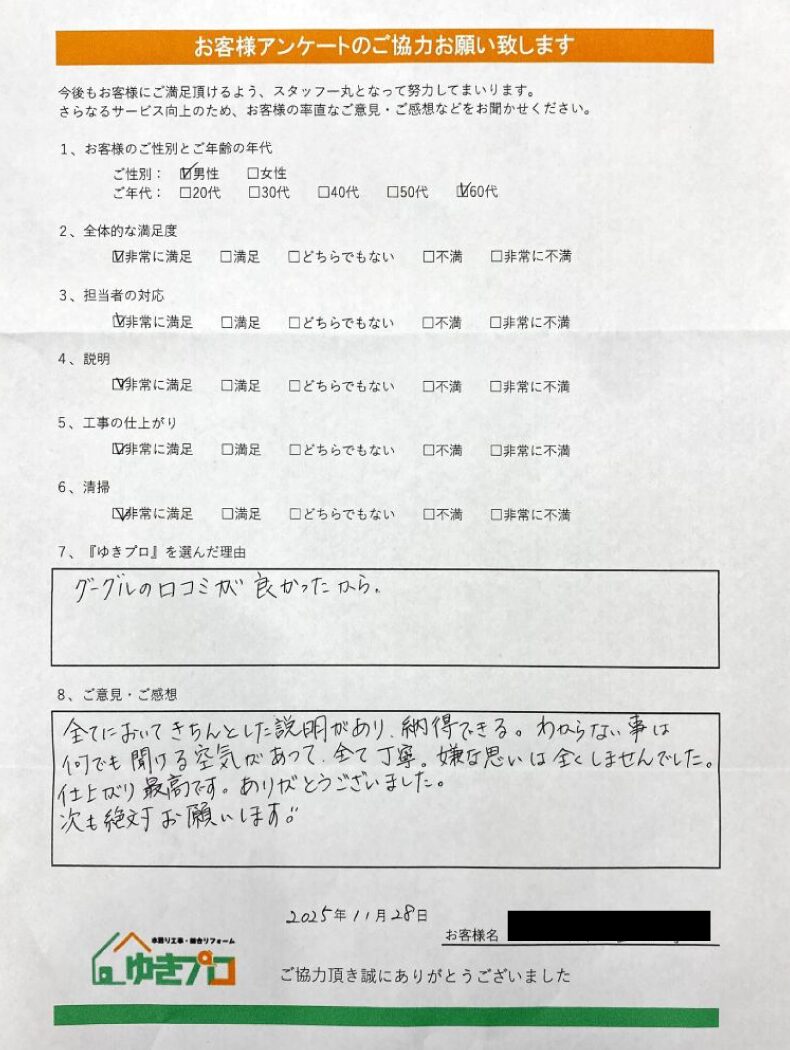 お客様アンケートのご協力お願い致します
今後もお客様にご満足頂けるよう、スタッフ一丸となって努力してまいります。
さらなるサービス向上のため、お客様の率直なご意見・ご感想などをお聞かせください。
1、お客様のご性別とご年齢の年代
ご性別： ☑男性 □女性
ご年代： □20代 □30代 □40代 □50代 ☑60代
2、全体的な満足度
☑非常に満足 □満足 □どちらでもない □不満 □非常に不満
3、担当者の対応
☑非常に満足 □満足 □どちらでもない □不満 □非常に不満
4、説明
☑非常に満足 □満足 □どちらでもない □不満 □非常に不満
5、工事の仕上がり
☑非常に満足 □満足 □どちらでもない □不満 □非常に不満
6、清掃
☑非常に満足 □満足 □どちらでもない □不満 □非常に不満
7、『ゆきプロ』を選んだ理由
グーグルの口コミが良かったから。
8、ご意見・ご感想
全てにおいてきちんとした説明があり、納得できる。わからない事は
何でも聞ける空気があって、全て丁寧。嫌な思いは全くしませんでした。
仕上がり最高です。ありがとうございました。
次も絶対お願いします。
2025年11月28日
お客様名
水廻り工事・総合リフォーム
ゆきプロ
ご協力頂き誠にありがとうございました